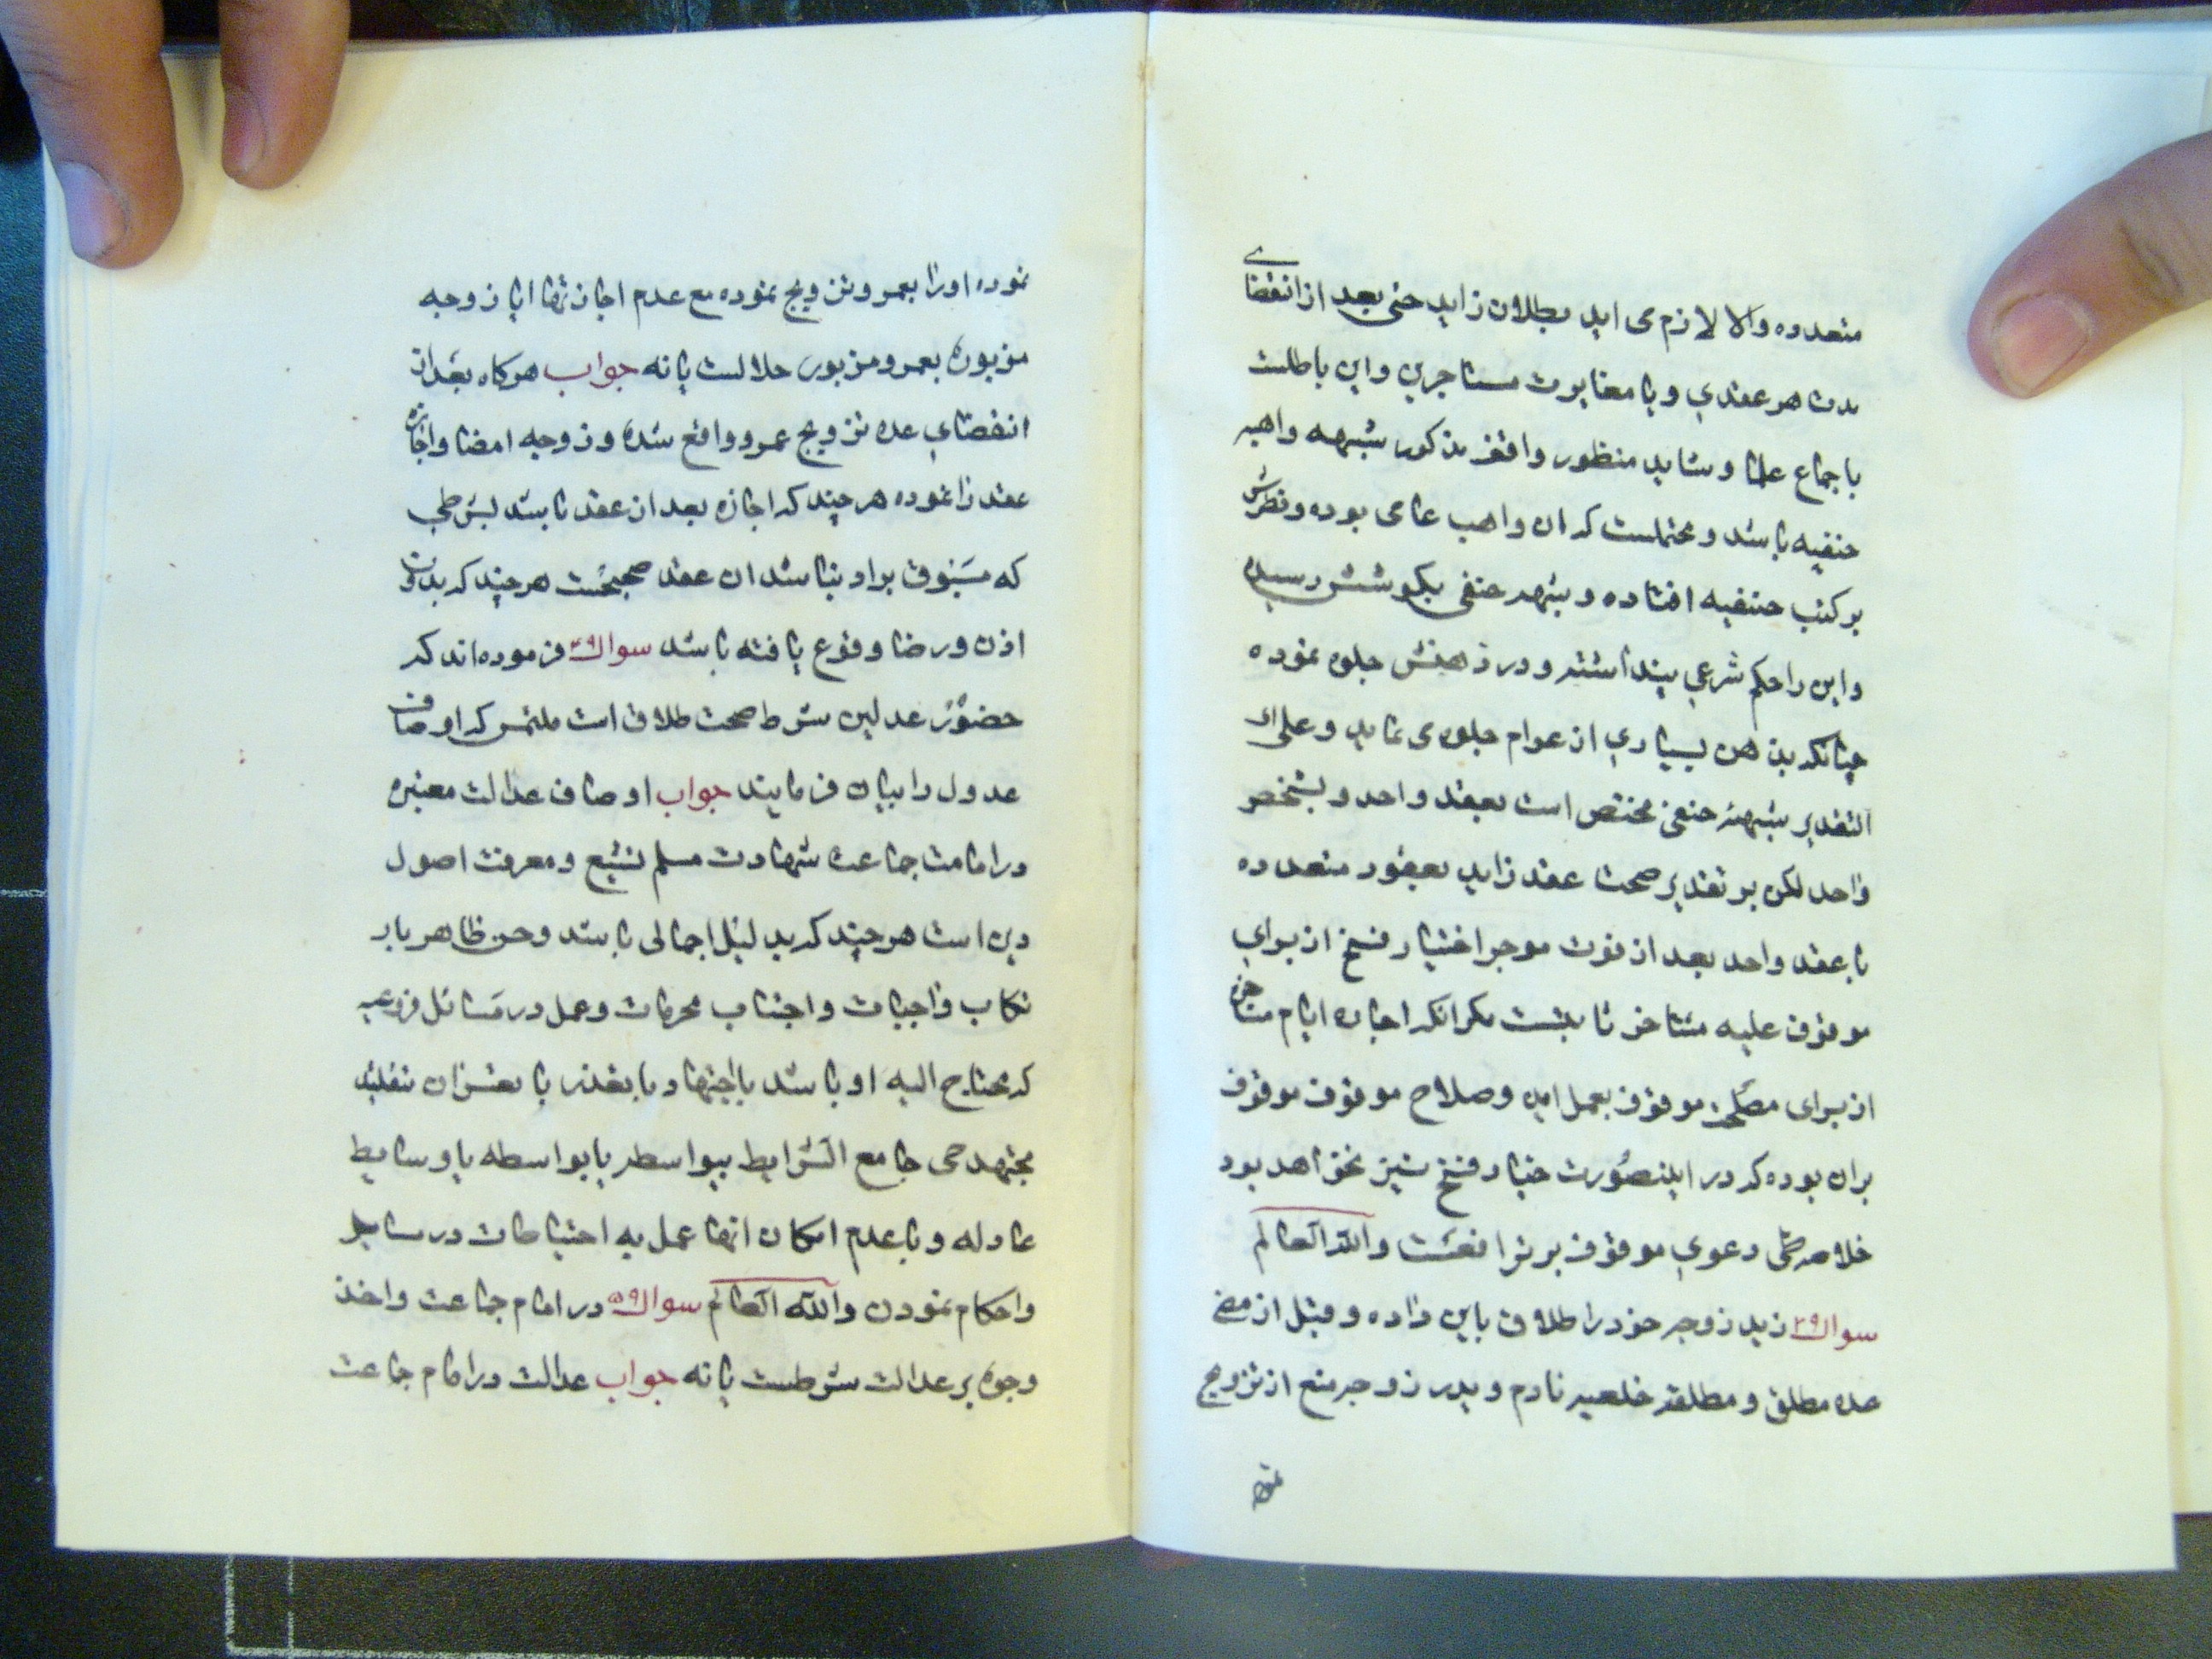 متعدده والا لازم می اید بطلان زاید حتی بعد از انقضای
مدت هر عقدی و یا مغایرت مستاجرین و این باطلست
باجماع علما و شاید منظور واقف مذکور شبهه واهیه
حنفیه باشد و محتملست که ان واهب عامی بوده و نظرش
بر کتب حنفیه افتاده و شبهه حنفی بگوشش رسیده
و این را حکم شرعی پنداشته و در ذهنش جلوه نموده
چنانکه بذهن بسیاری از عوام جلوه می نماید و علی ای
التقدیر شبهه حنفی مختص است بعقد واحد و بشخص
واحد لکن بر تقدیر صحت عقد زاید بعقود متعدده
یا عقد واحد بعد از فوت موجر اختیار فسخ از برای
موقوف علیه متاخر ثابتست مکر انکه اجاره ایام متاخره
از برای مصلحت موقوف بعمل امده و صلاح موقوف موقوف
بران بوده که در اینصورت خیار فسخ نیز نخواهد بود
خلاصه دعوی موقوف بر مرافعست والله العالم
سوال ۲۹ زید زوجه خود را طلاق باین داده و قبل از مضی
عده مطلق و مطلقه خلعیه نادم و پدر زوجه منع از تزویج
نموده
نموده او را بعمرو تزویج نموده مع عدم اجازتها ایا زوجه
مزبوره بعمرو مزبور حلالست یا نه جواب هرکاه بعد از
انقضای عده تزویج عمرو واقع شده و زوجه امضا و اجازه
عقد را نموده هر چند که اجازه بعد از عقد باشد بشرطی
که مسبوق برد نباشد ان عقد صحیحست هر چند که بدون
اذن و رضا وقوع یافته باشد سوال ۴۹ فرموده اند که
حضور عدلین شرط صحت طلاق است ملتمس که اوصاف
عدول را بیان فرمایند جواب اوصاف عدالت معتبره
در امامت جماعت شهادت مسلم تشیع و معرفت اصول
دین است هر چند که بدلیل اجمالی باشد و حسن ظاهر بار
تکاب واجبات و اجتناب محرمات و عمل در مسائل فروعیه
که محتاج الیه او باشد باجتهاد یا بعنوان تقلید
مجتهد حی جامع الشرایط بیواسطه یا بواسطه یا وسایط
عادله و با عدم امکان انها عمل به احتیاطات در مسایل
و احکام نمودن والله العالم سوال ۵۹ در امام جماعت و اخذ
وجوه بر عدالت شرطست یا نه جواب عدالت در امام جماعت